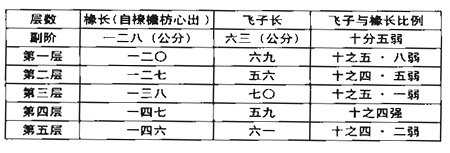 层数 椽长（自檩檐枋心出） 飞子长 飞子与椽长比例
副阶 一二八（公分） 六三（公分） 十分五弱
第一层 一二〇 六九 十之五·八弱
第二层 一二七 五六 十之四·五弱
第三层 一三八 七〇 十之五·一弱
第四层 一四七 五九 十之四强
第五层 一四六 六一 十之四·二弱